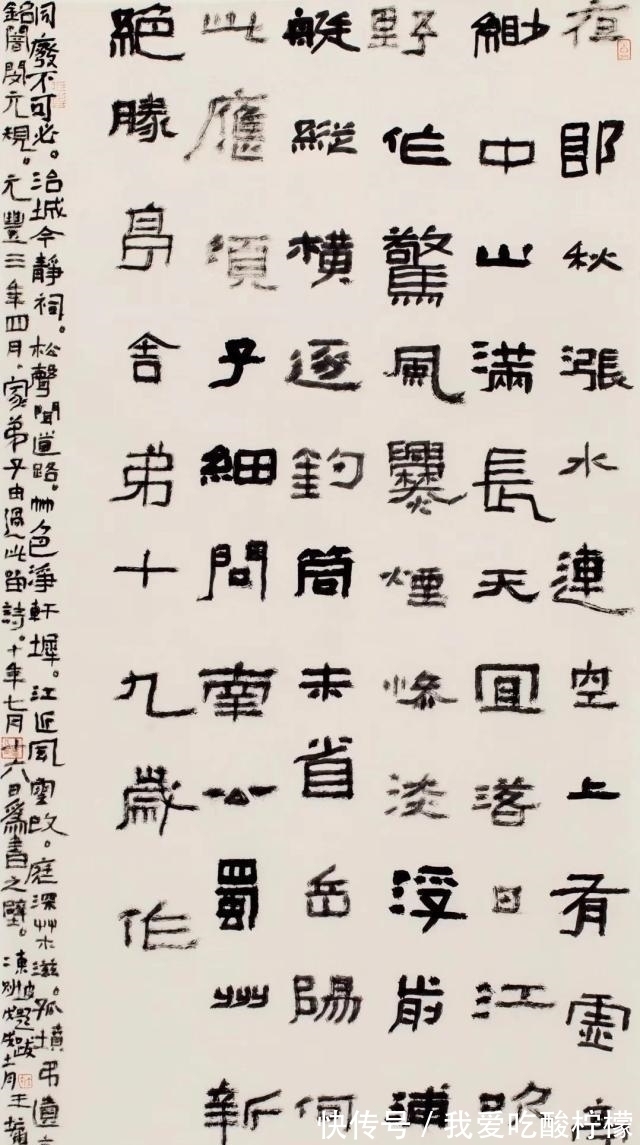 夜郎秋漲水連空上有虛
緲中山滿長天宜落日江吹
野作驚風爨煙慘淡浮前浦
艇縱橫逐釣筒未省岳陽何
此應須子細問南公蜀州新
絕勝亭舍弟十九歲作
廢不可必。冶城今靜祠。松聲聞道路。竹色淨軒墀。江近風雲改。庭深草木滋。孤墳弔遺
銘闇閔元規。元豐三年四月。家弟子由過此留詩。十年七月十六日為書之壁。東坡題跋 十一月王鏞
快传号 / 我爱吃酸柠檬